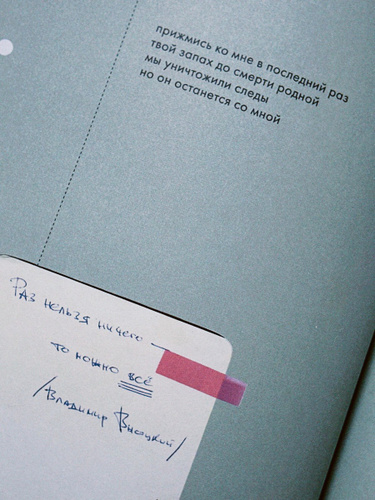 прижмись ко мне в последний раз
твой запах до смерти родной
мы уничтожили следы
но он останется со мной
Раз нельзя ничего —
то можно всё
/Владимир Высоцкий/